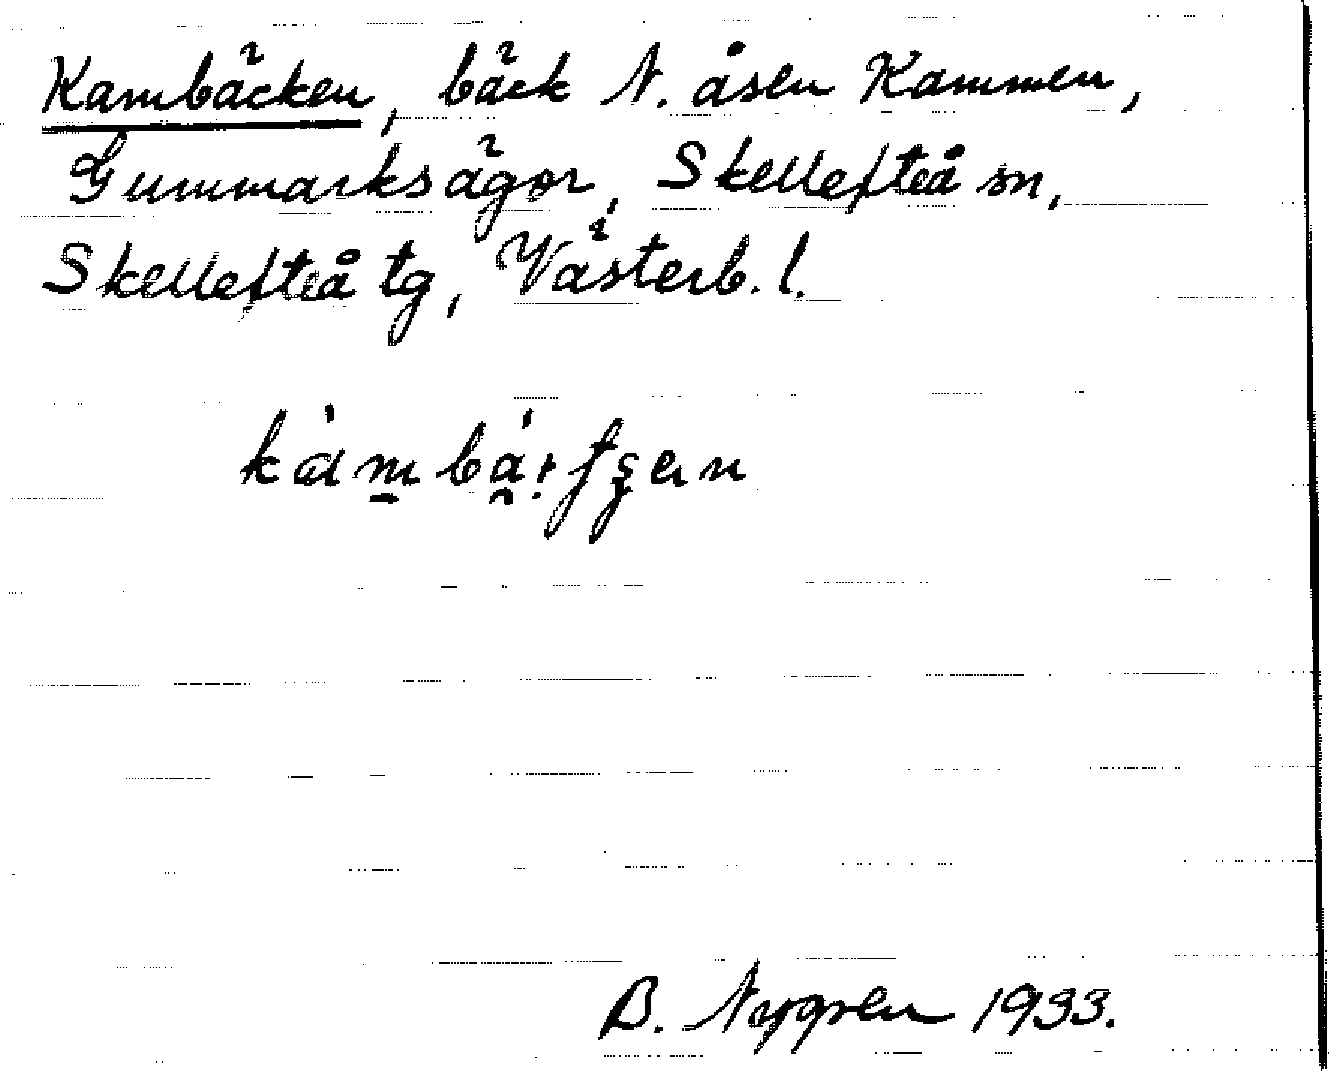 Kambäcken, bäck N. åsen Kammen,
Gummarksägor, Skellefteå sn,
Skellefteå tg, Västerb. l.
B. Nygren 1933.